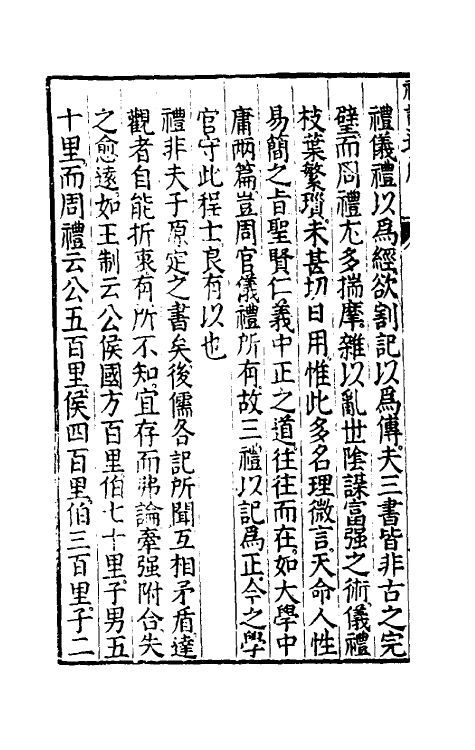 禮儀禮以爲經欲割記以爲傳夫三書皆非古之完
璧而周禮尤多揣摩雜以亂世陰謀富强之術儀禮
枝葉繁瑣未甚切日用惟此多名理微言天命人性
易簡之旨聖賢仁義中正之道往往而在如大學中
庸兩篇豈周官儀禮所有故三禮以記爲正今之學
官守此程士良有以也
禮非夫子原定之書矣後儒各記所聞互相矛盾達
觀者自能折衷有所不知宜存而弗論牽强附合失
之愈遠如王制云公侯國方百里伯七十里子男五
十里而周禮云公五百里侯四百里伯三百里子二